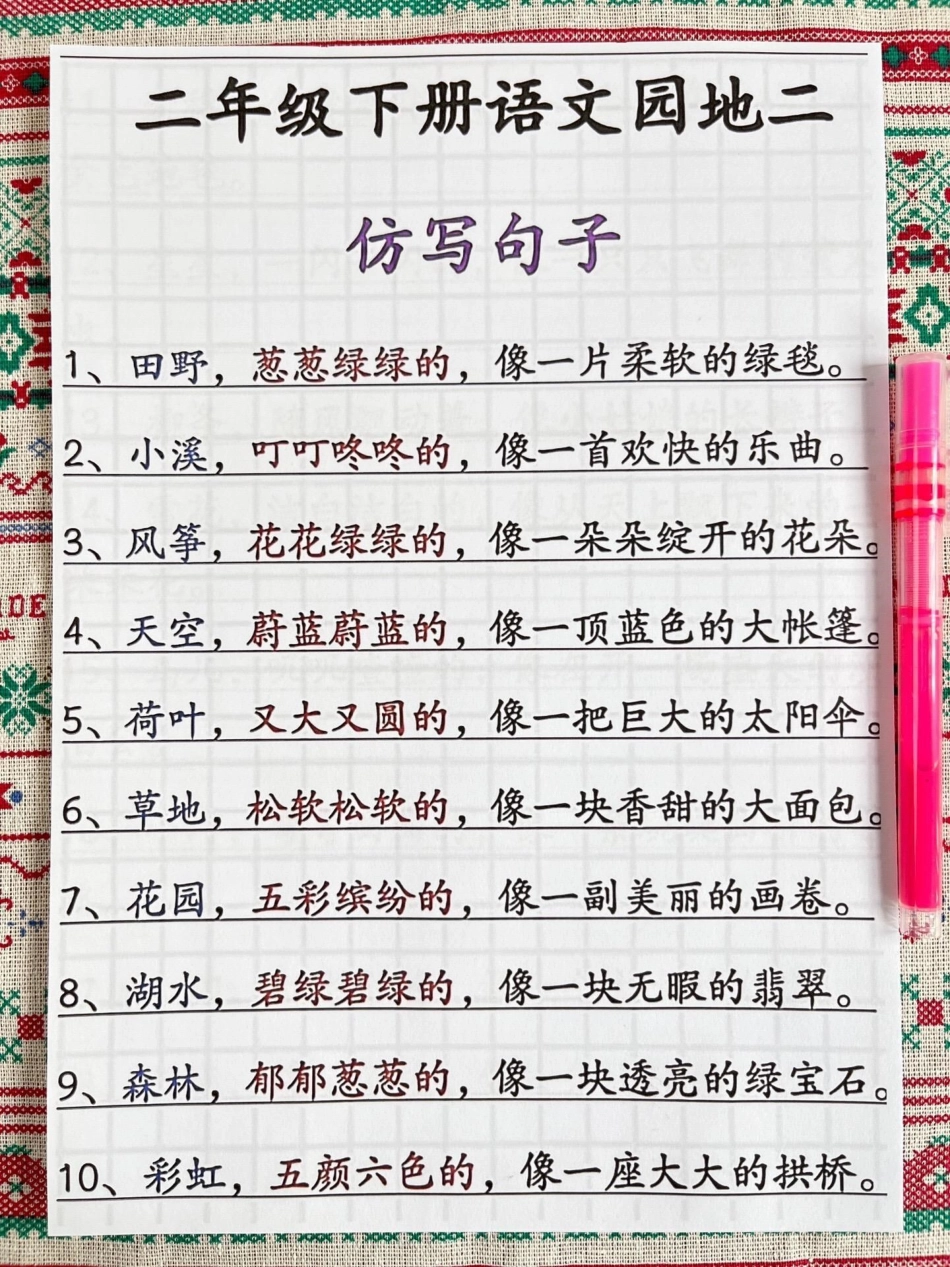 二年级下册语文园地二
仿写句子
1、田野，葱葱绿绿的，像一片柔软的绿毯。
2、小溪，叮叮咚咚的，像一首欢快的乐曲。
3、风筝，花花绿绿的，像一朵朵绽开的花朵。
4、天空，蔚蓝蔚蓝的，像一顶蓝色的大帐篷。
5、荷叶，又大又圆的，像一把巨大的太阳伞。
6、草地，松软松软的，像一块香甜的大面包。
7、花园，五彩缤纷的，像一副美丽的画卷。
8、湖水，碧绿碧绿的，像一块无暇的翡翠。
9、森林，郁郁葱葱的，像一块透亮的绿宝石。
10、彩虹，五颜六色的，像一座大大的拱桥。